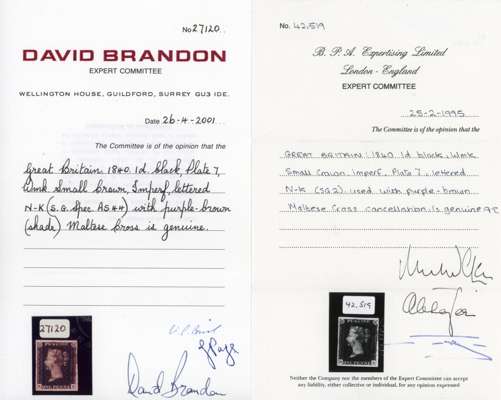 No 27120.
DAVID BRANDON
EXPERT COMMITTEE
WELLINGTON HOUSE, GUILDFORD, SURREY GU3 IDE.
Date 26-4-2001
The Committee is of the opinion that the
Great Britain 1840. 1d black, Plate 7,
Wmk Small Crown, Imperf, lettered
N-K (S.G. Spec AS44) with purple-brown
(shade) Maltese Cross is genuine.
27120
David Brandon
No. 42,519
B. P. A. Expertising Limited
London - England
EXPERT COMMITTEE
25-2-1995
The Committee is of the opinion that the
GREAT BRITAIN: 1840 1d black, Wmk
Small Crown Imperf, Plate 7, lettered
N-K (SG2) used with purple-brown
Maltese Cross cancellation is genuine
42,519
Neither the Company nor the members of the Expert Committee can accept
any liability, either collective or individual, for any opinion expressed